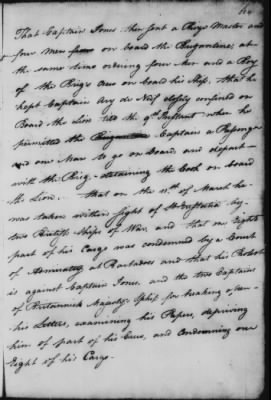 That Captain Jones then sent a Prize Master and
four Men on board the Brigantine, at
the same time ordering four Men and a Boy
of the Brig's Crew on board his Ship, that he
kept Captain Ary de Neif closely confined on
Board the Lion till the 9th Instant when he
permitted the Captain a Passenger
and one Man to go on board and depart
with the Brig - detaining the Cook on board
the Lion. that on the 11th of March he
was taken within sight of St Eustatia by
two British Ships of War, and that one Eighth
part of his Cargo was condemned by a Court
of Admiralty at Barbadoes and that his Protest
is against Captain Jones, and the two Captains
of Britannick Majesty's Ships for breaking open
his Letters, examining his Papers, depriving
him of part of his Crew, and Condemning one
Eight of his Cargo.